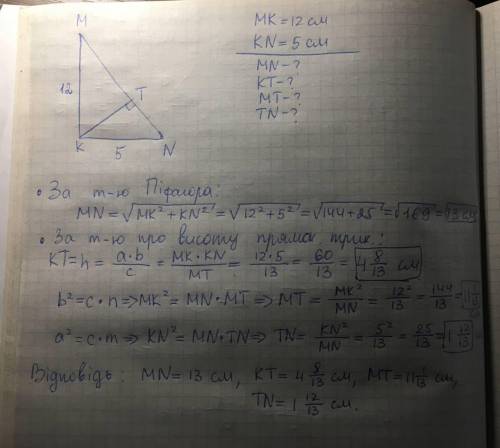 M
MK = 12 см
KN = 5 см
MN - ?
KT - ?
MT - ?
TN - ?
12
T
K
5
N
• За т-ю Піфагора:
MN = √MK² + KN² = √12² + 5² = √144 + 25 = √169 = 13 см
• За т-ю про висоту прямок. трик.:
KT = h = a·b/c = MK·KN/MT = 12·5/13 = 60/13 = 4 8/13 см
b² = c·n ⇒ MK² = MN·MT ⇒ MT = MK²/MN = 12²/13 = 144/13 = 11 1/13
a² = c·m ⇒ KN² = MN·TN ⇒ TN = KN²/MN = 5²/13 = 25/13 = 1 12/13
Відповідь: MN = 13 см, KT = 4 8/13 см, MT = 11 1/13 см,
TN = 1 12/13 см.